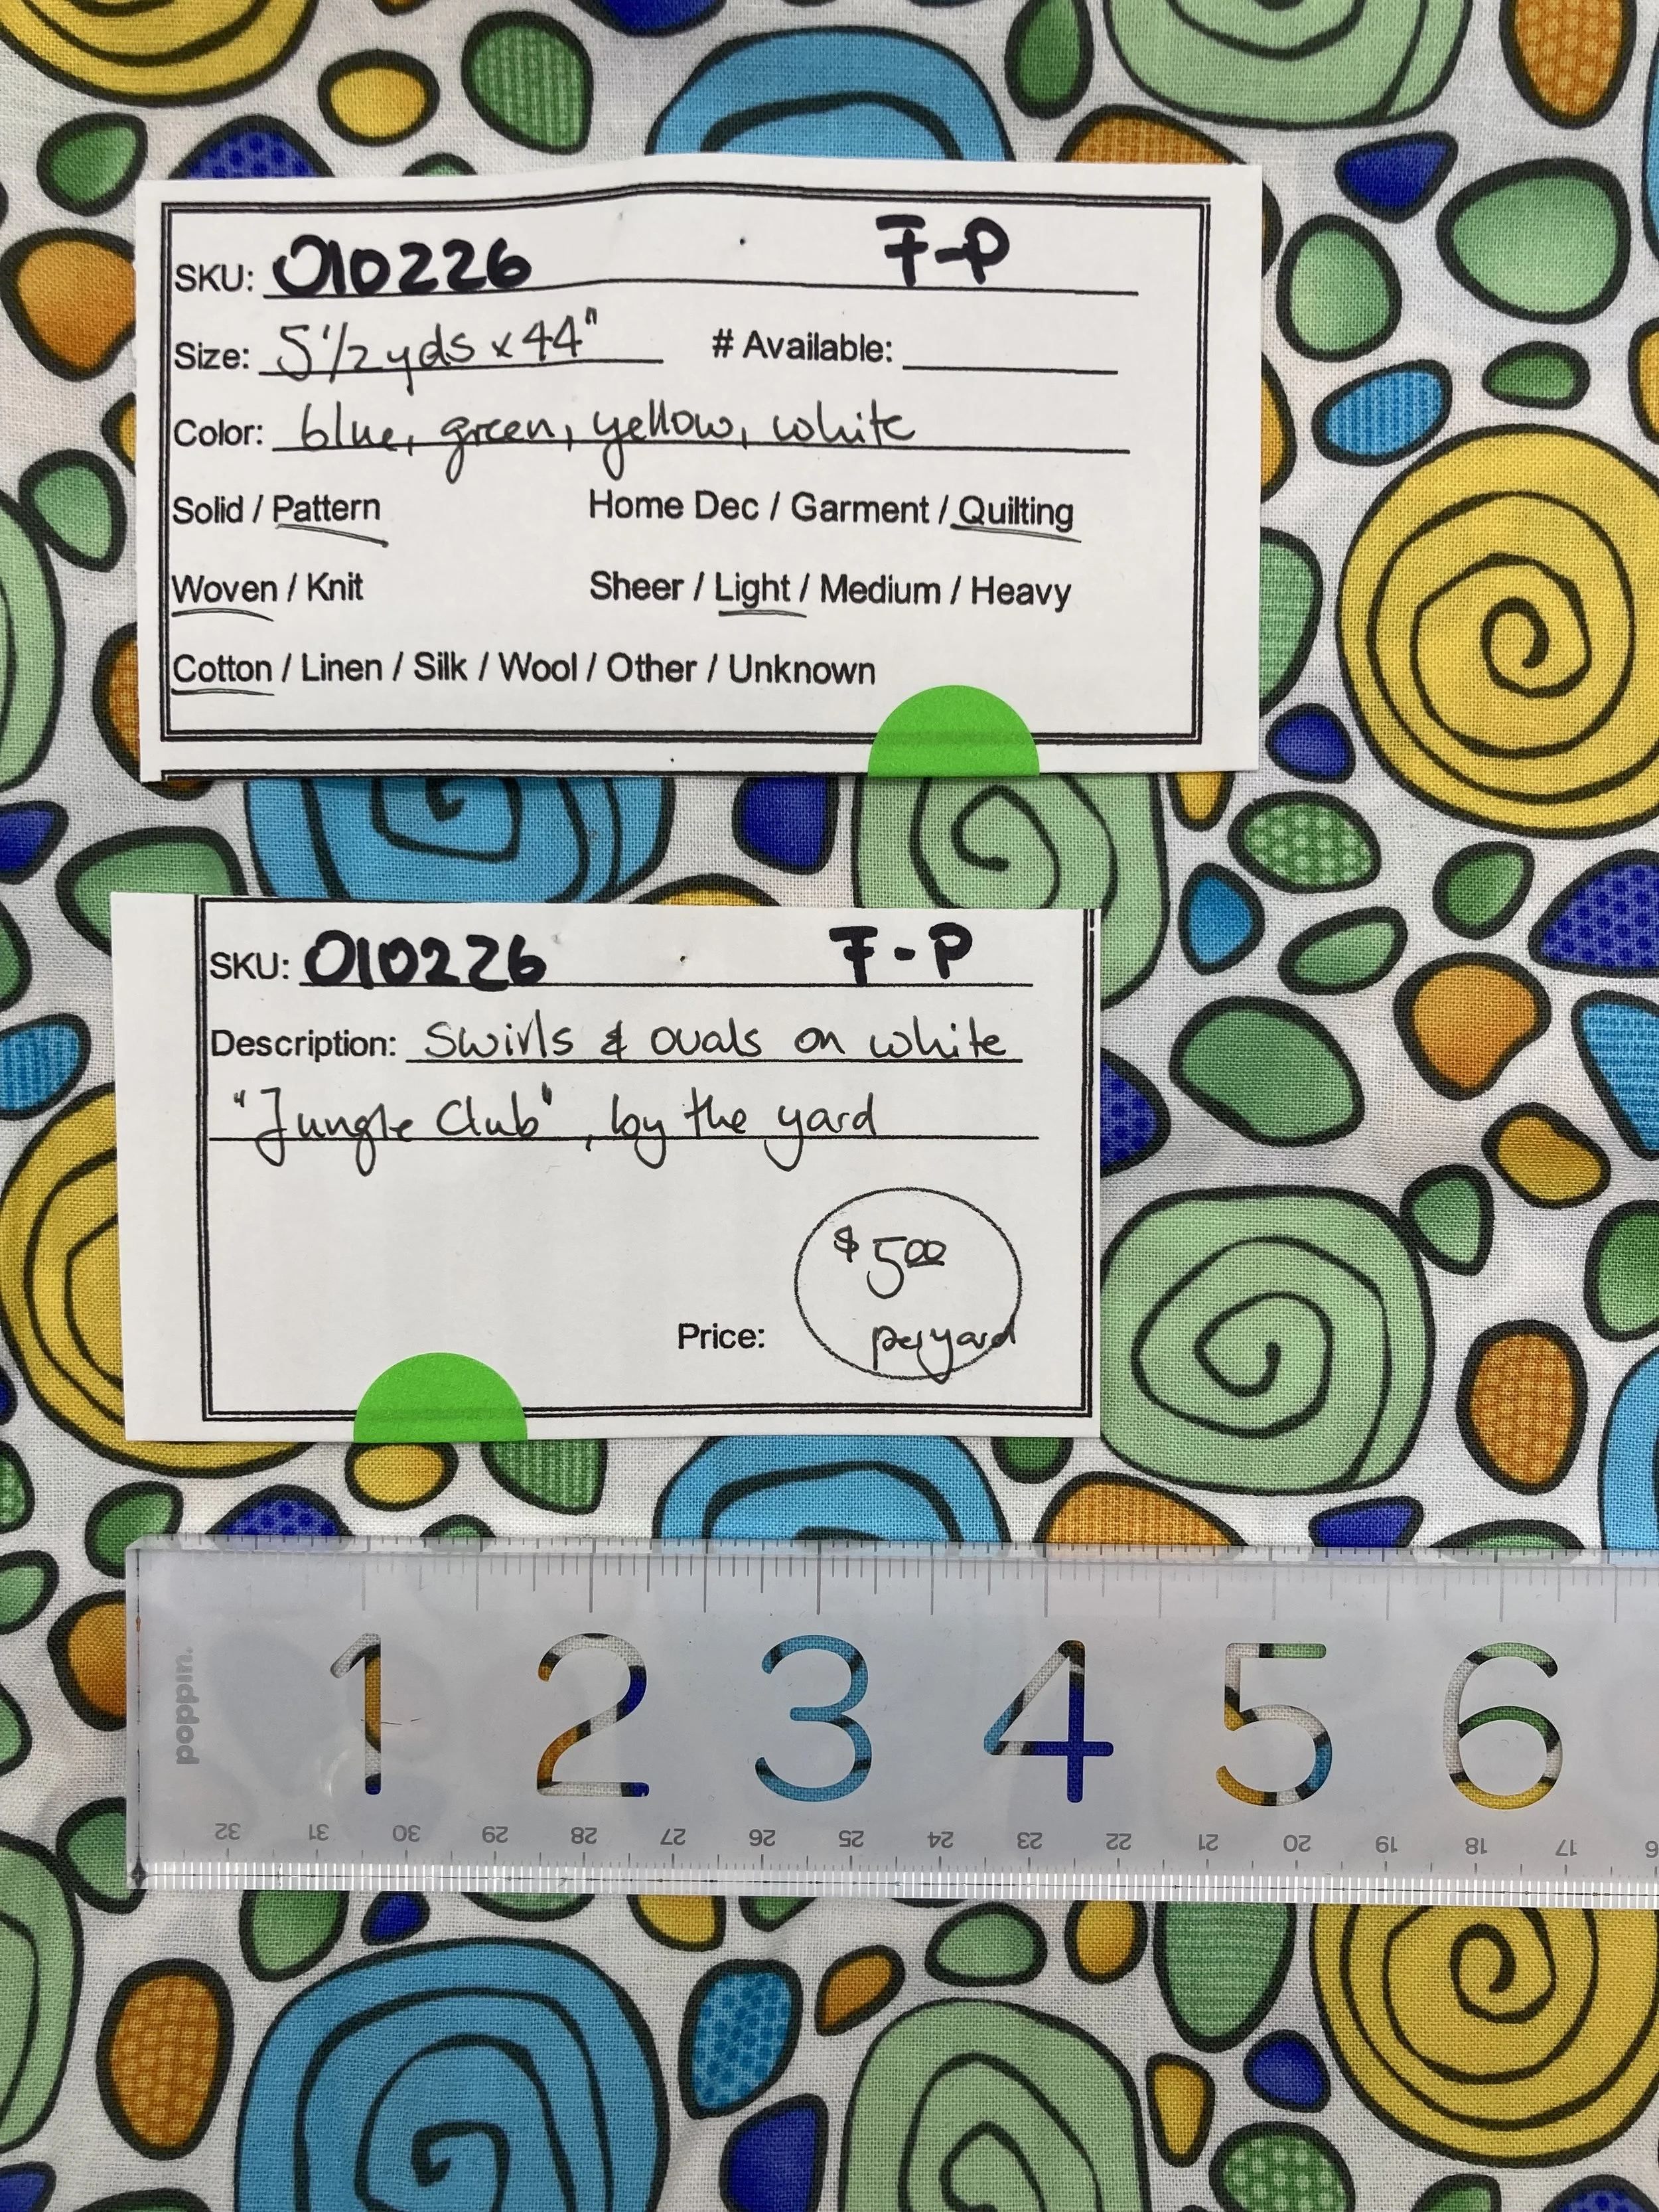 SKU: 010226 F-P
Size: 5 1/2 yds x 44" # Available:
Color: blue, green, yellow, white
Solid / Pattern Home Dec / Garment / Quilting
Woven / Knit Sheer / Light / Medium / Heavy
Cotton / Linen / Silk / Wool / Other / Unknown
SKU: 010226 F-P
Description: Swirls & ovals on white
"Jungle Club", by the yard
$5.00
Price: per yard
poppin.
1 2 3 4 5 6
32 31 30 29 28 27 26 25 24 23 22 21 20 19 18 17